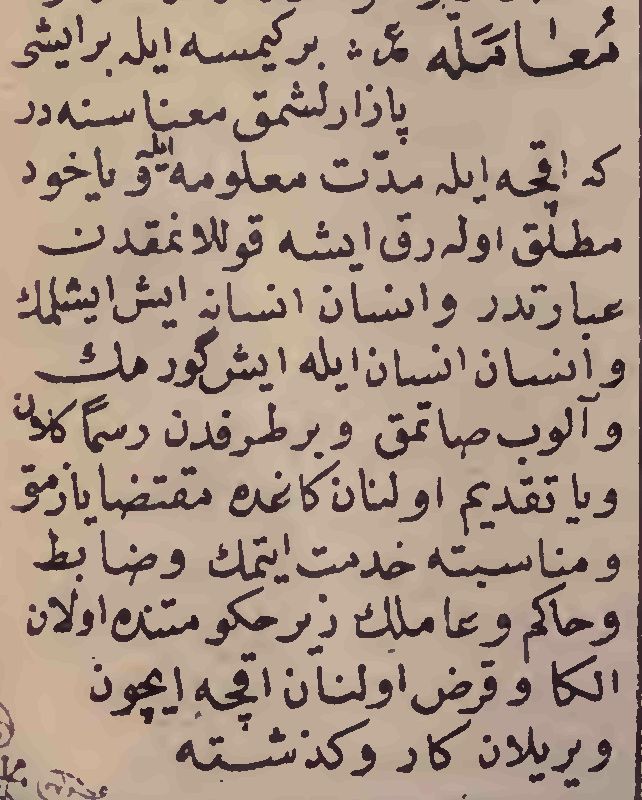 مُعَامَلَه عر بر كيمسه ايله بر ايشى
پازارلشمق معناسنه در
كه اقچه ايله مدّت معلومه ايله و ياخود
مطلق اوله رق ايشه قوللانمقدن
عبارتدر و انسان انسانه ايش ايشلمك
و انسان انسان ايله ايش گورمك
و آلوب صاتمق و بر طرفدن رسماً كلان
و يا تقديم اولنان كاغده مقتضا يازمق
و مناسبته خدمت ايتمك و ضابط
و حاكم و عاملك زير حكومتنده اولان
الكا و قرض اولنان اقچه ايچون
ويريلان كار و كذشته